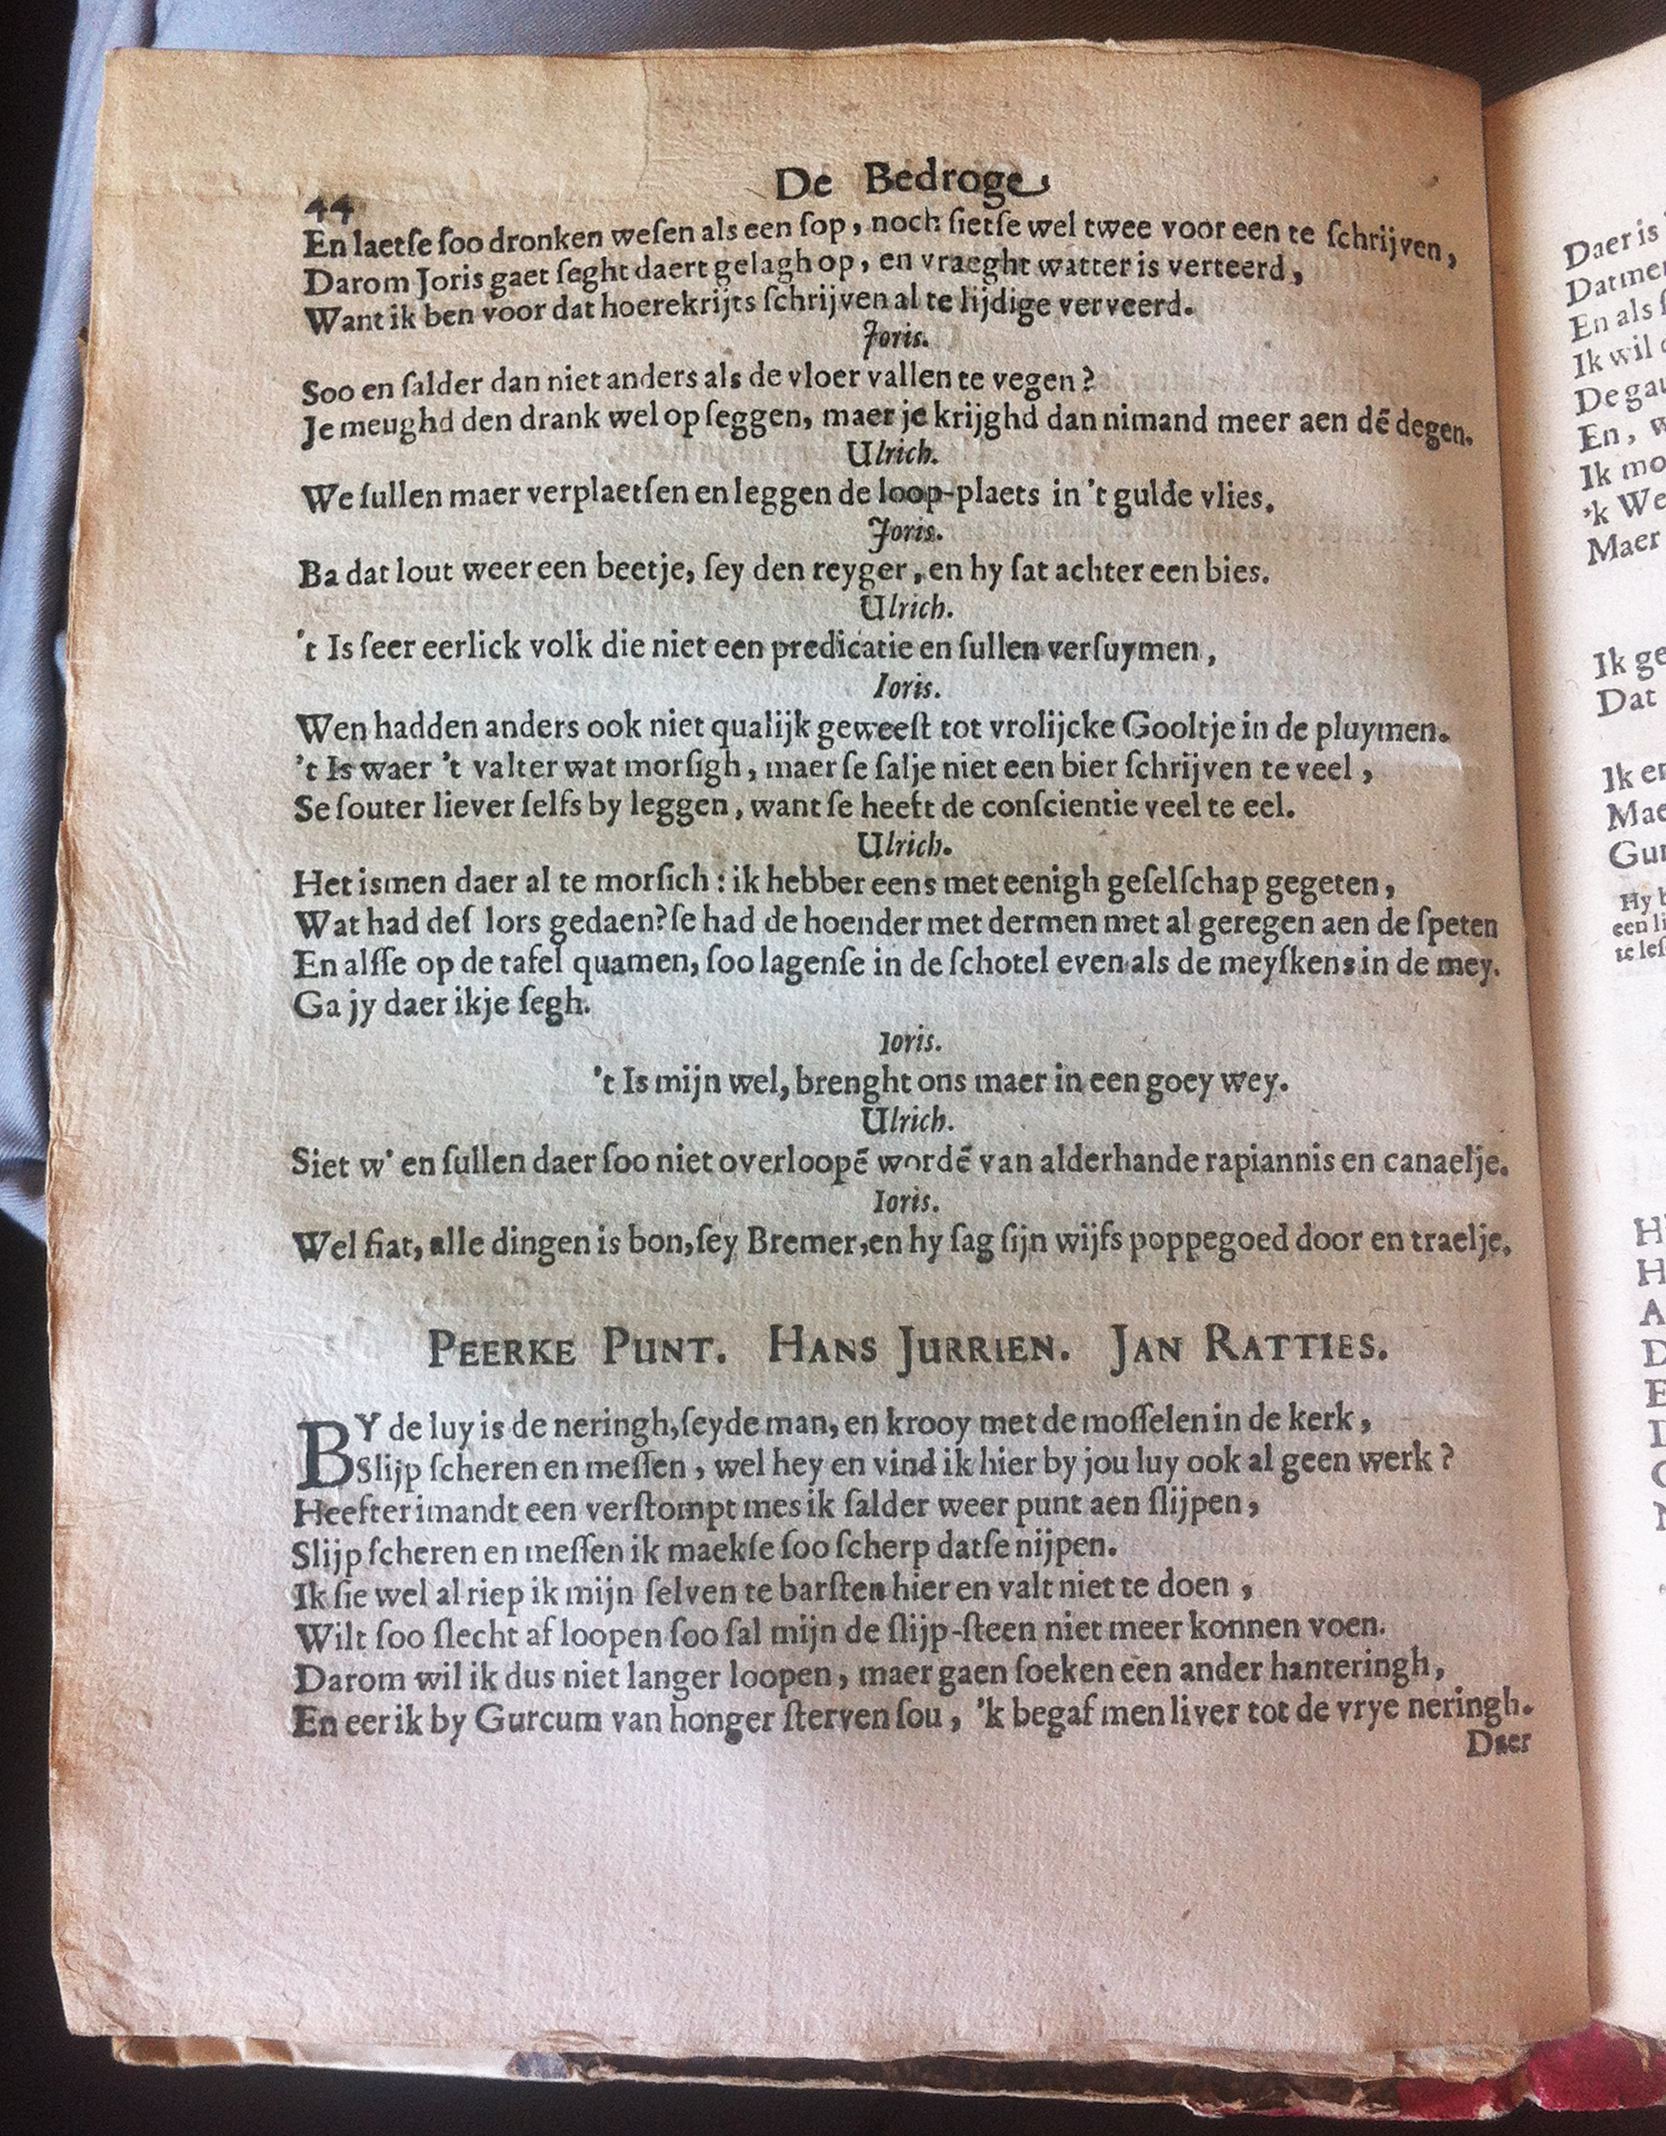 De Bedroge
44
En laetſe ſoo dronken weſen als een ſop, noch ſietſe wel twee voor een te ſchrijven,
Darom Joris gaet ſeght daert gelagh op, en vraeght watter is verteerd,
Want ik ben voor dat hoerekrijts ſchrijven al te lijdige verveerd.
Joris.
Soo en ſalder dan niet anders als de vloer vallen te vegen?
Je meughd den drank wel op ſeggen, maer je krijghd dan nimand meer aen dē degen.
Ulrich.
We ſullen maer verplaetſen en leggen de loop-plaets in 't gulde vlies.
Joris.
Ba dat lout weer een beetje, ſey den reyger, en hy ſat achter een bies.
Ulrich.
't Is ſeer eerlick volk die niet een predicatie en ſullen verſuymen,
Ioris.
Wen hadden anders ook niet qualijk geweeſt tot vrolijcke Gooltje in de pluymen.
't Is waer 't valter wat morſigh, maer ſe ſalje niet een bier ſchrijven te veel,
Se ſouter liever ſelfs by leggen, want ſe heeft de conſcientie veel te eel.
Ulrich.
Het ismen daer al te morſich: ik hebber eens met eenigh geſelſchap gegeten,
Wat had deſ lors gedaen? ſe had de hoender met dermen met al geregen aen de ſpeten
En alſſe op de tafel quamen, ſoo lagenſe in de ſchotel even als de meyſkens in de mey.
Ga jy daer ikje ſegh.
Ioris.
't Is mijn wel, brenght ons maer in een goey wey.
Ulrich.
Siet w' en ſullen daer ſoo niet overloopē wordē van alderhande rapiannis en canaelje.
Ioris.
Wel fiat, alle dingen is bon, ſey Bremer, en hy ſag ſijn wijfs poppegoed door en traelje.
PEERKE PUNT. HANS JURRIEN. JAN RATTIES.
BY de luy is de neringh, ſeyde man, en krooy met de moſſelen in de kerk,
Slijp ſcheren en meſſen, wel hey en vind ik hier by jou luy ook al geen werk?
Heefter imandt een verſtompt mes ik ſalder weer punt aen ſlijpen,
Slijp ſcheren en meſſen ik maekſe ſoo ſcherp datſe nijpen.
Ik ſie wel al riep ik mijn ſelven te barſten hier en valt niet te doen,
Wilt ſoo ſlecht af loopen ſoo ſal mijn de ſlijp-ſteen niet meer konnen voen.
Darom wil ik dus niet langer loopen, maer gaen ſoeken een ander hanteringh,
En eer ik by Gurcum van honger ſterven ſou, 'k begaf men liver tot de vrye neringh.
Daer
Daer is
En als
Ik wil
En,
Ik mo
'k We
Maer
Ik ge
Dat
Ik en
Mae
Gur
Hy
een li
te leſ